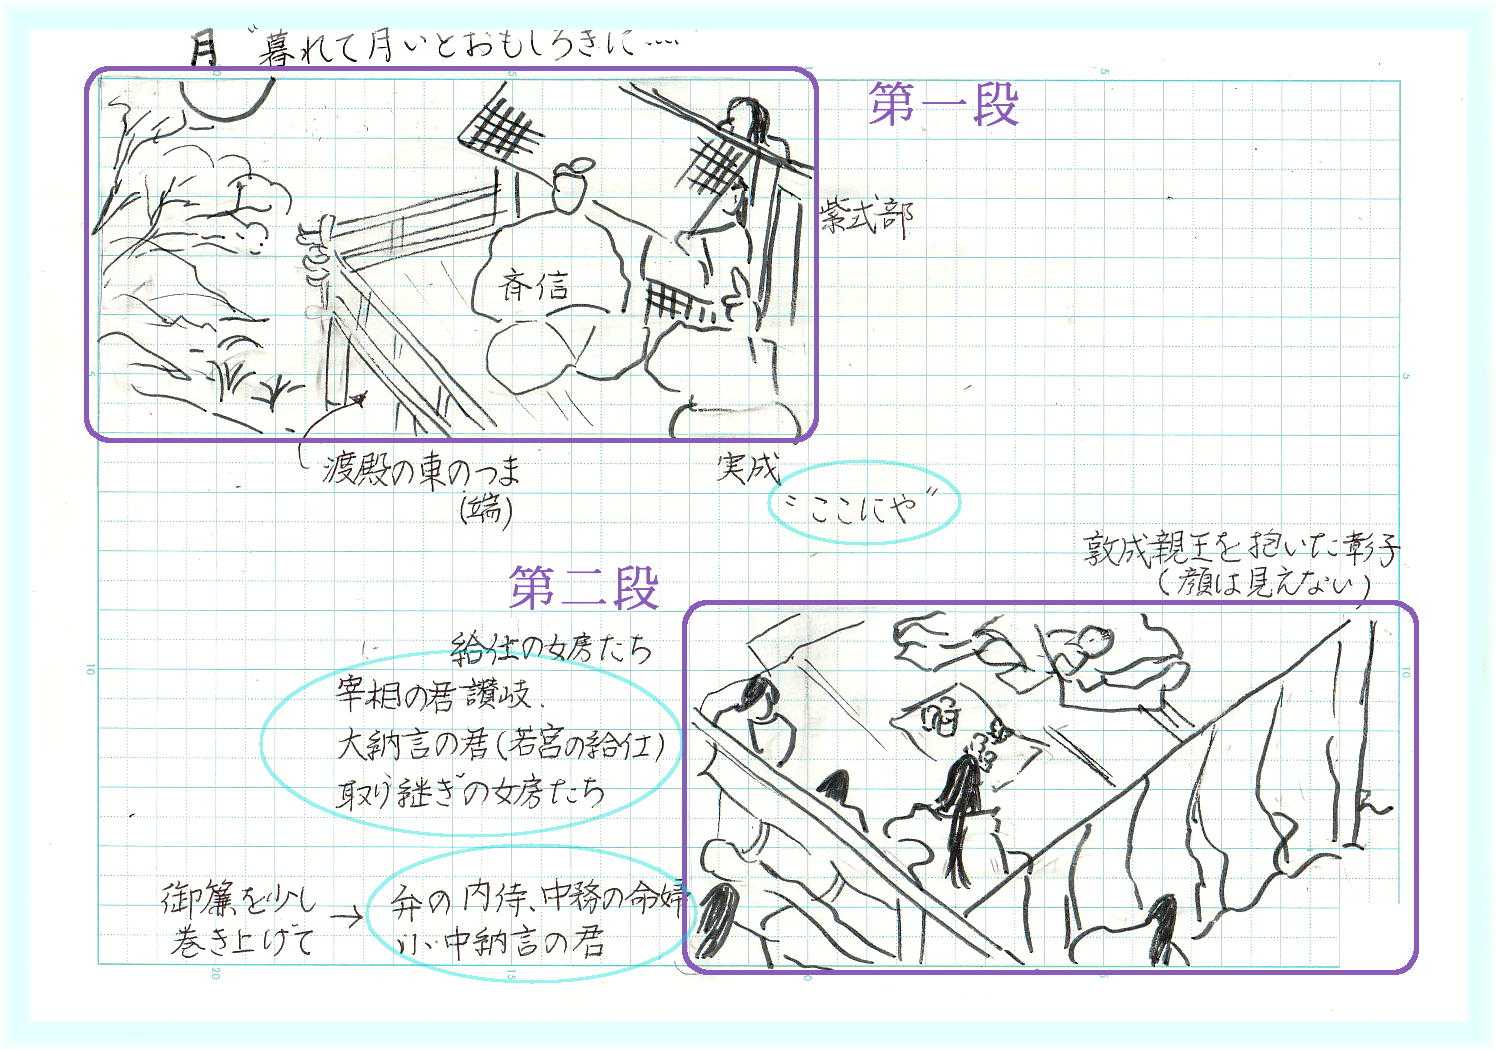 月 〝暮れて月いとおもしろきに……
第一段
紫式部
斉信
渡殿の東のつま
(端)
実成
〝ここにや〟
第二段
敦成親王を抱いた彰子
(顔は見えない)
給仕の女房たち
宰相の君讃岐、
大納言の君(若宮の給仕)
取り継ぎの女房たち
御簾を少し
巻き上げて
→
弁の内侍、中務の命婦
小中納言の君
5
5
5
5
10
10
10
15
20